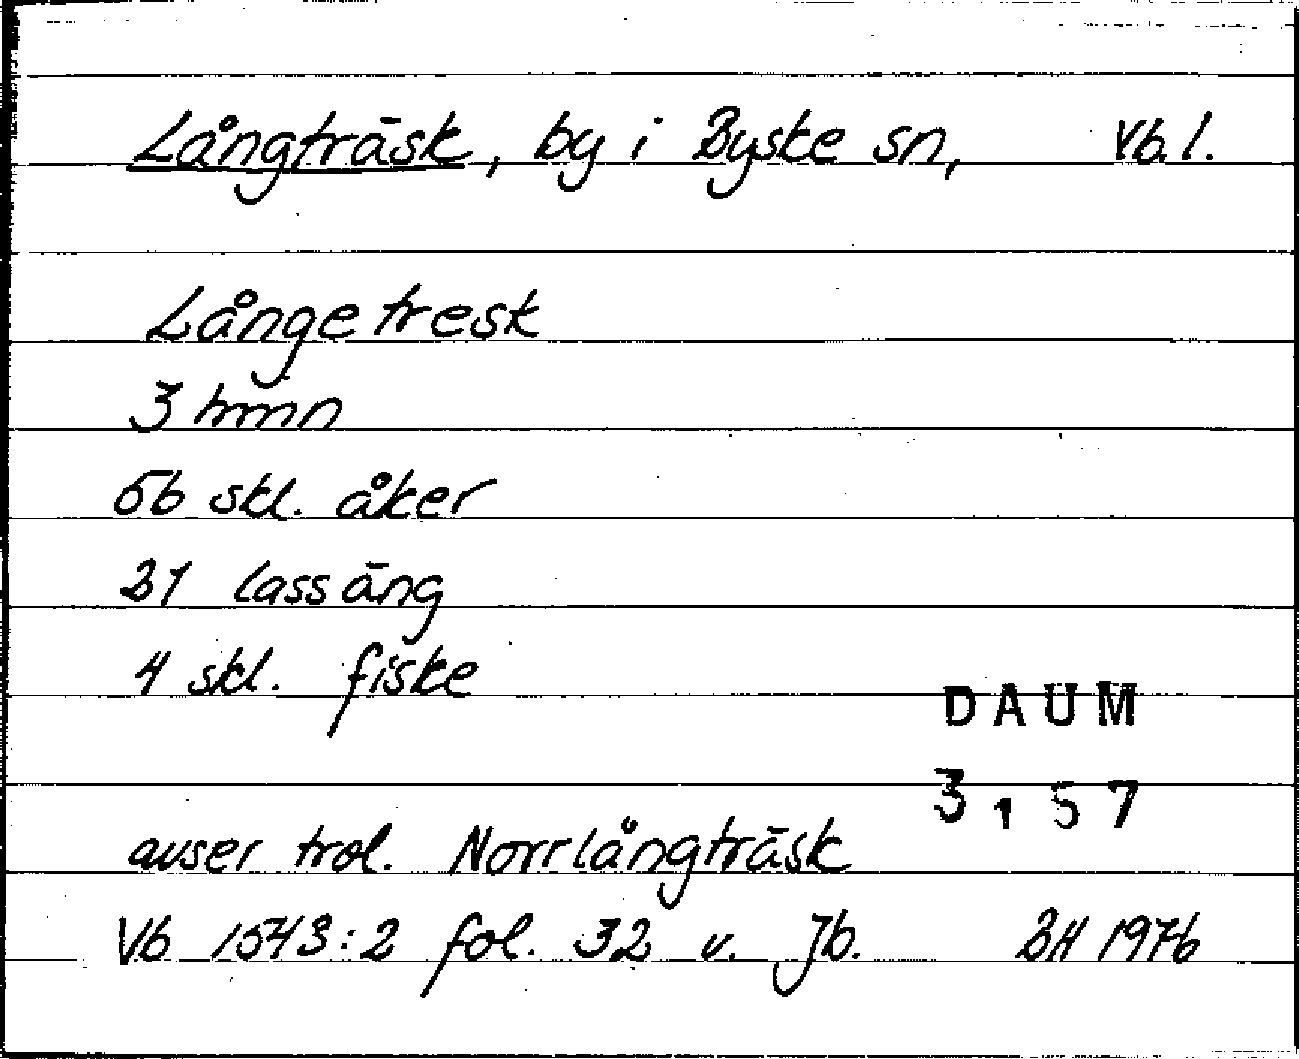 Långträsk, by i Byske sn, Vb. l.
Långe tresk
3 hmn
56 skl. åker
21 lass äng
4 skl. fiske
DAUM
3157
avser trol. Norrlångträsk
Vb 1543:2 fol. 32 v. Jb. BH 1976